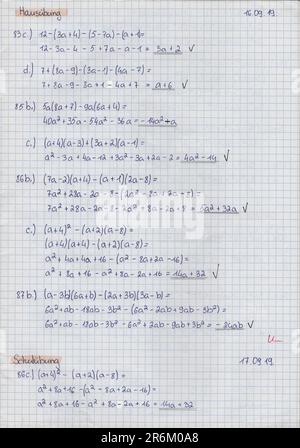 Hausübung 16.09.19
83c) 12-(3a+4)-(5-7a)-(a+1)=
12-3a-4-5+7a-a-1=3a+2 ✓
d) 7+(8a-9)-(3a-1)-(4a-7)=
7+8a-9-3a+1-4a+7=a+6 ✓
85b) 5a(8a+7)-9a(6a+4)=
40a²+35a-54a²-36a=-14a²-a
c) (a+4)(a-3)+(3a+2)(a-1)=
a²-3a+4a-12+3a²-3a+2a-2=4a²-14 ✓
86b) (7a-2)(a+4)-(a+1)(2a-8)=
7a²+28a-2a-8-
7a²+28a-2a-8-2a²+8a-2a+8=5a²+32a ✓
c) (a+4)²-(a+2)(a-8)=
(a+4)(a+4)-(a+2)(a-8)=
a²+4a+4a+16-(a²-8a+2a-16)=
a²+8a+16-a²+8a-2a+16=14a+32 ✓
87b) (a-3b)(6a+b)-(2a+3b)(3a-b)=
6a²+ab-18ab-3b²-(6a²-2ab+9ab-3b²)=
6a²+ab-18ab-3b²-6a²+2ab-9ab+3b²=-24ab ✓
Schulübung 17.09.19
86c) (a+4)²-(a+2)(a-8)=
a²+8a+16-(a²-8a+2a-16)=
a²+8a+16-a²+8a-2a+16=14a+32
alamy
www.alamy.com
Image ID: 2R6M0A8